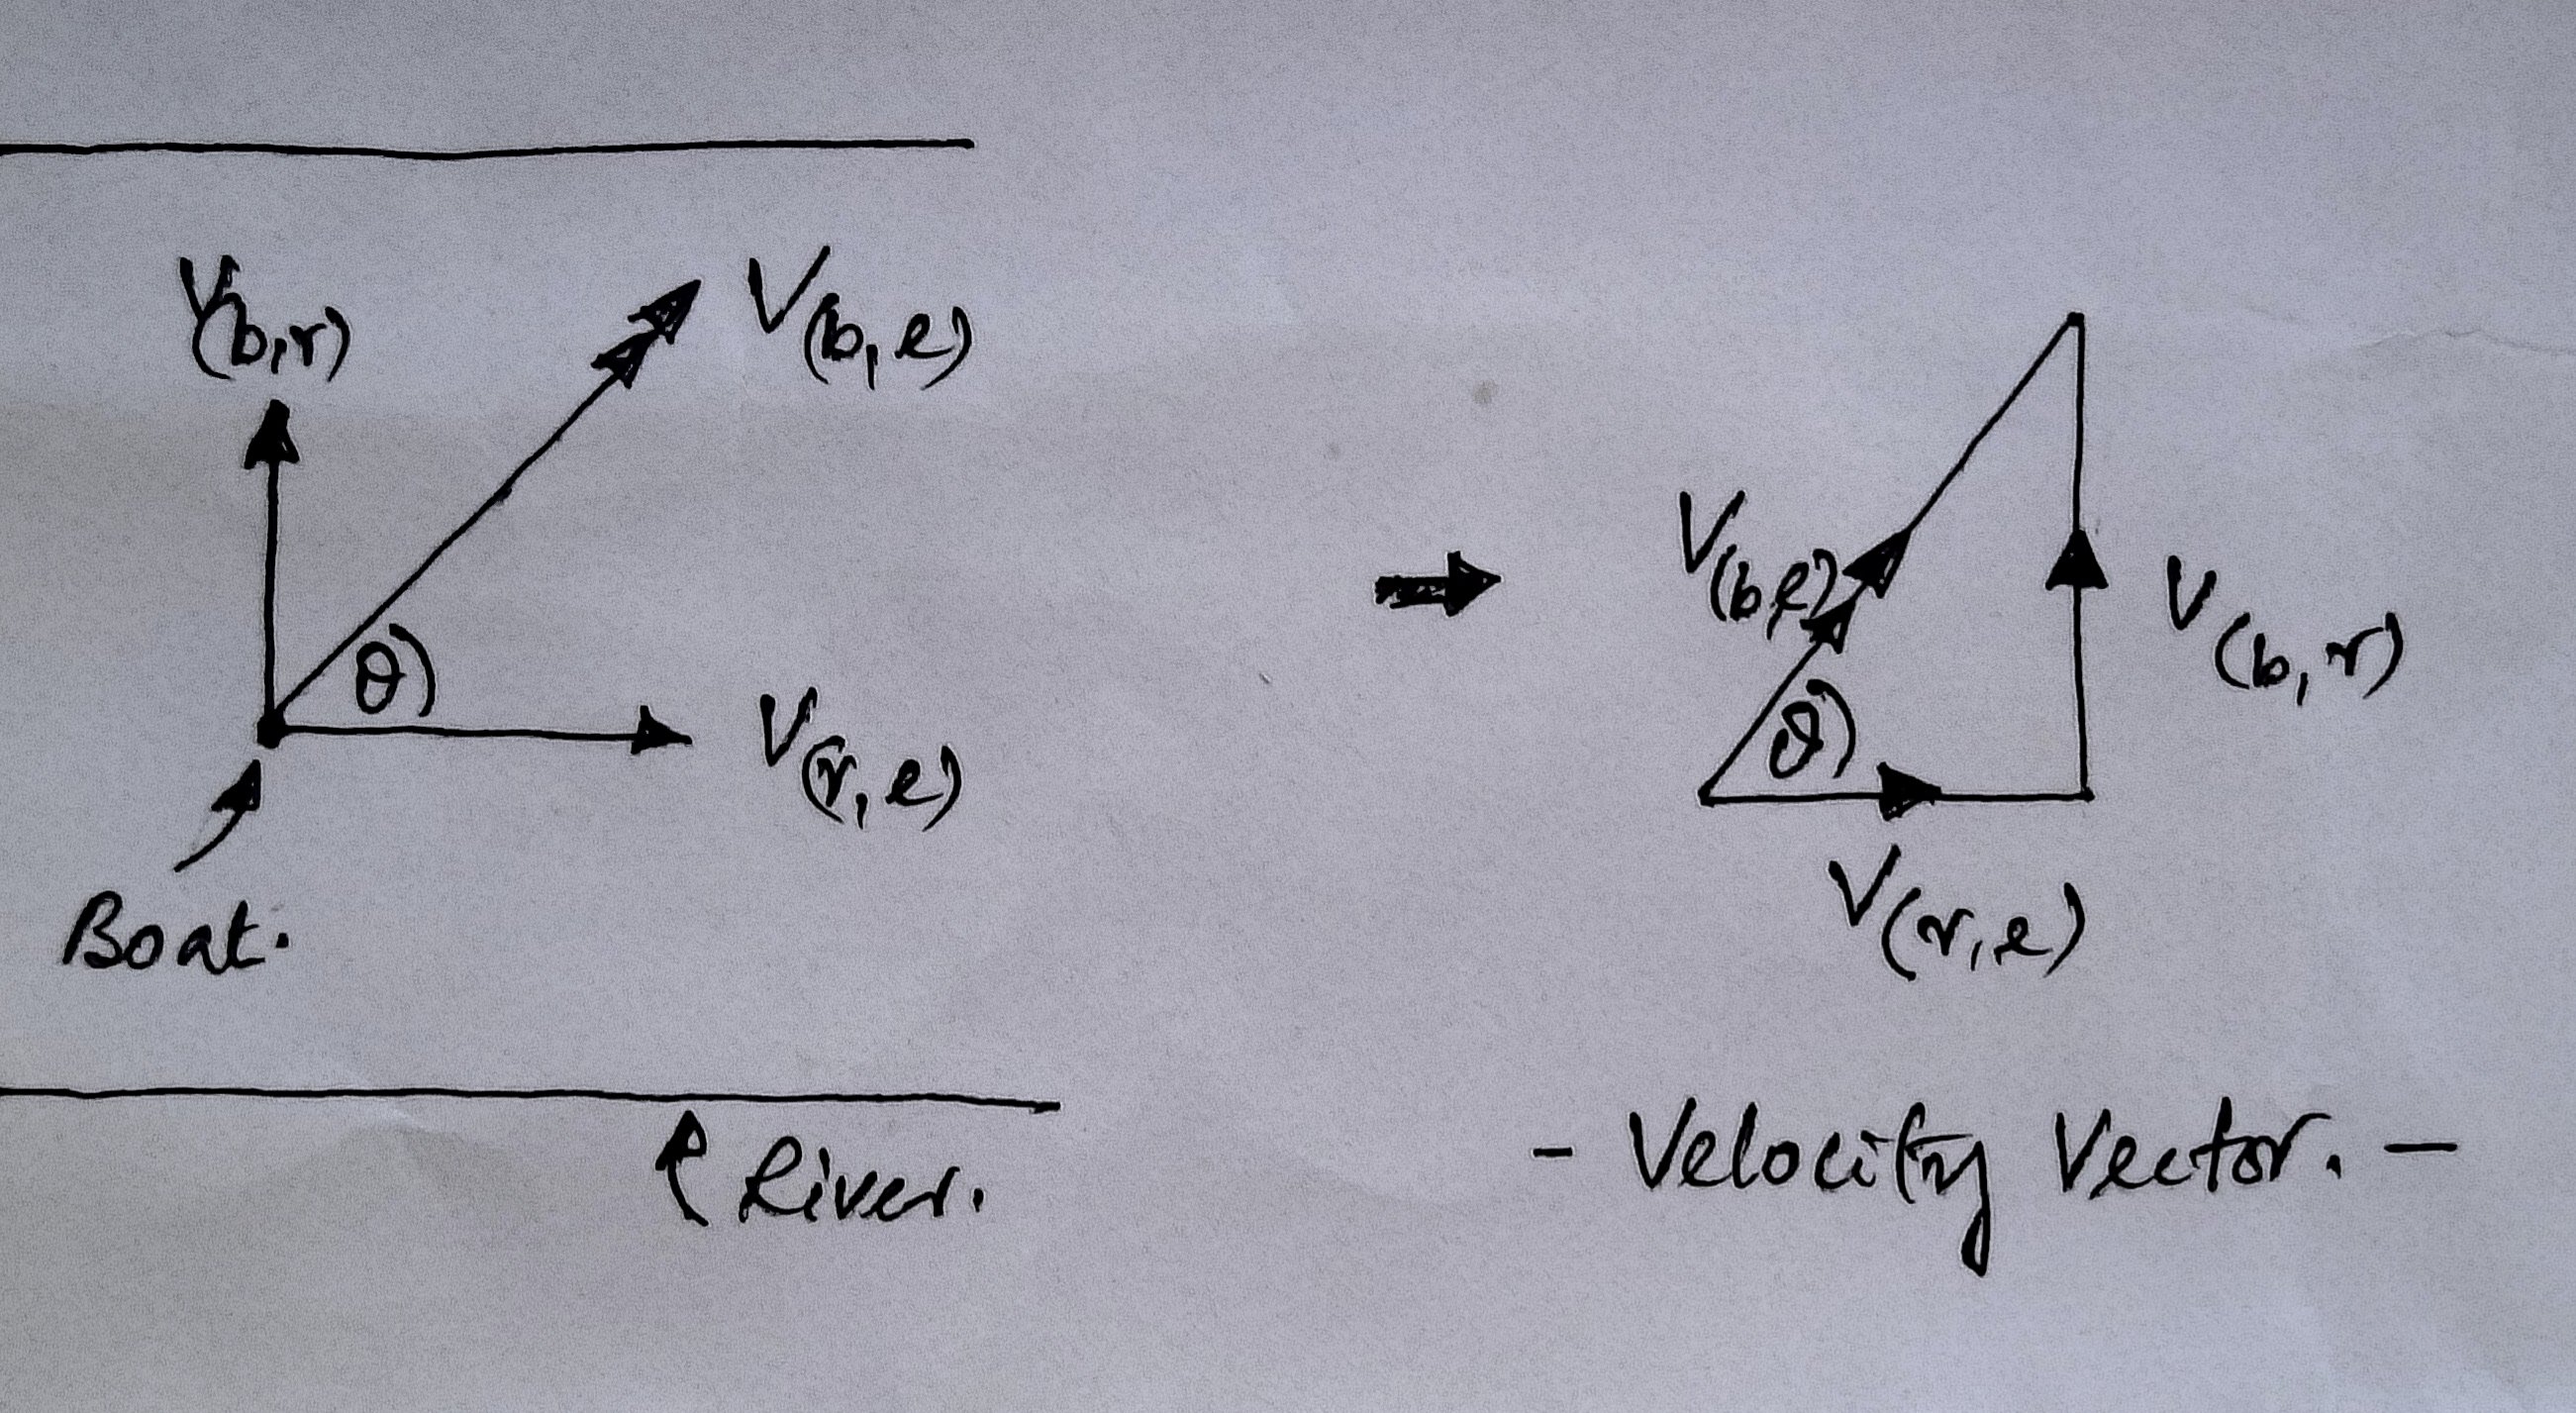 V(b,r)
V(b,e)
θ)
V(r,e)
Boat.
River.
V(b,e)
θ)
V(b,r)
V(r,e)
- Velocity Vector. -